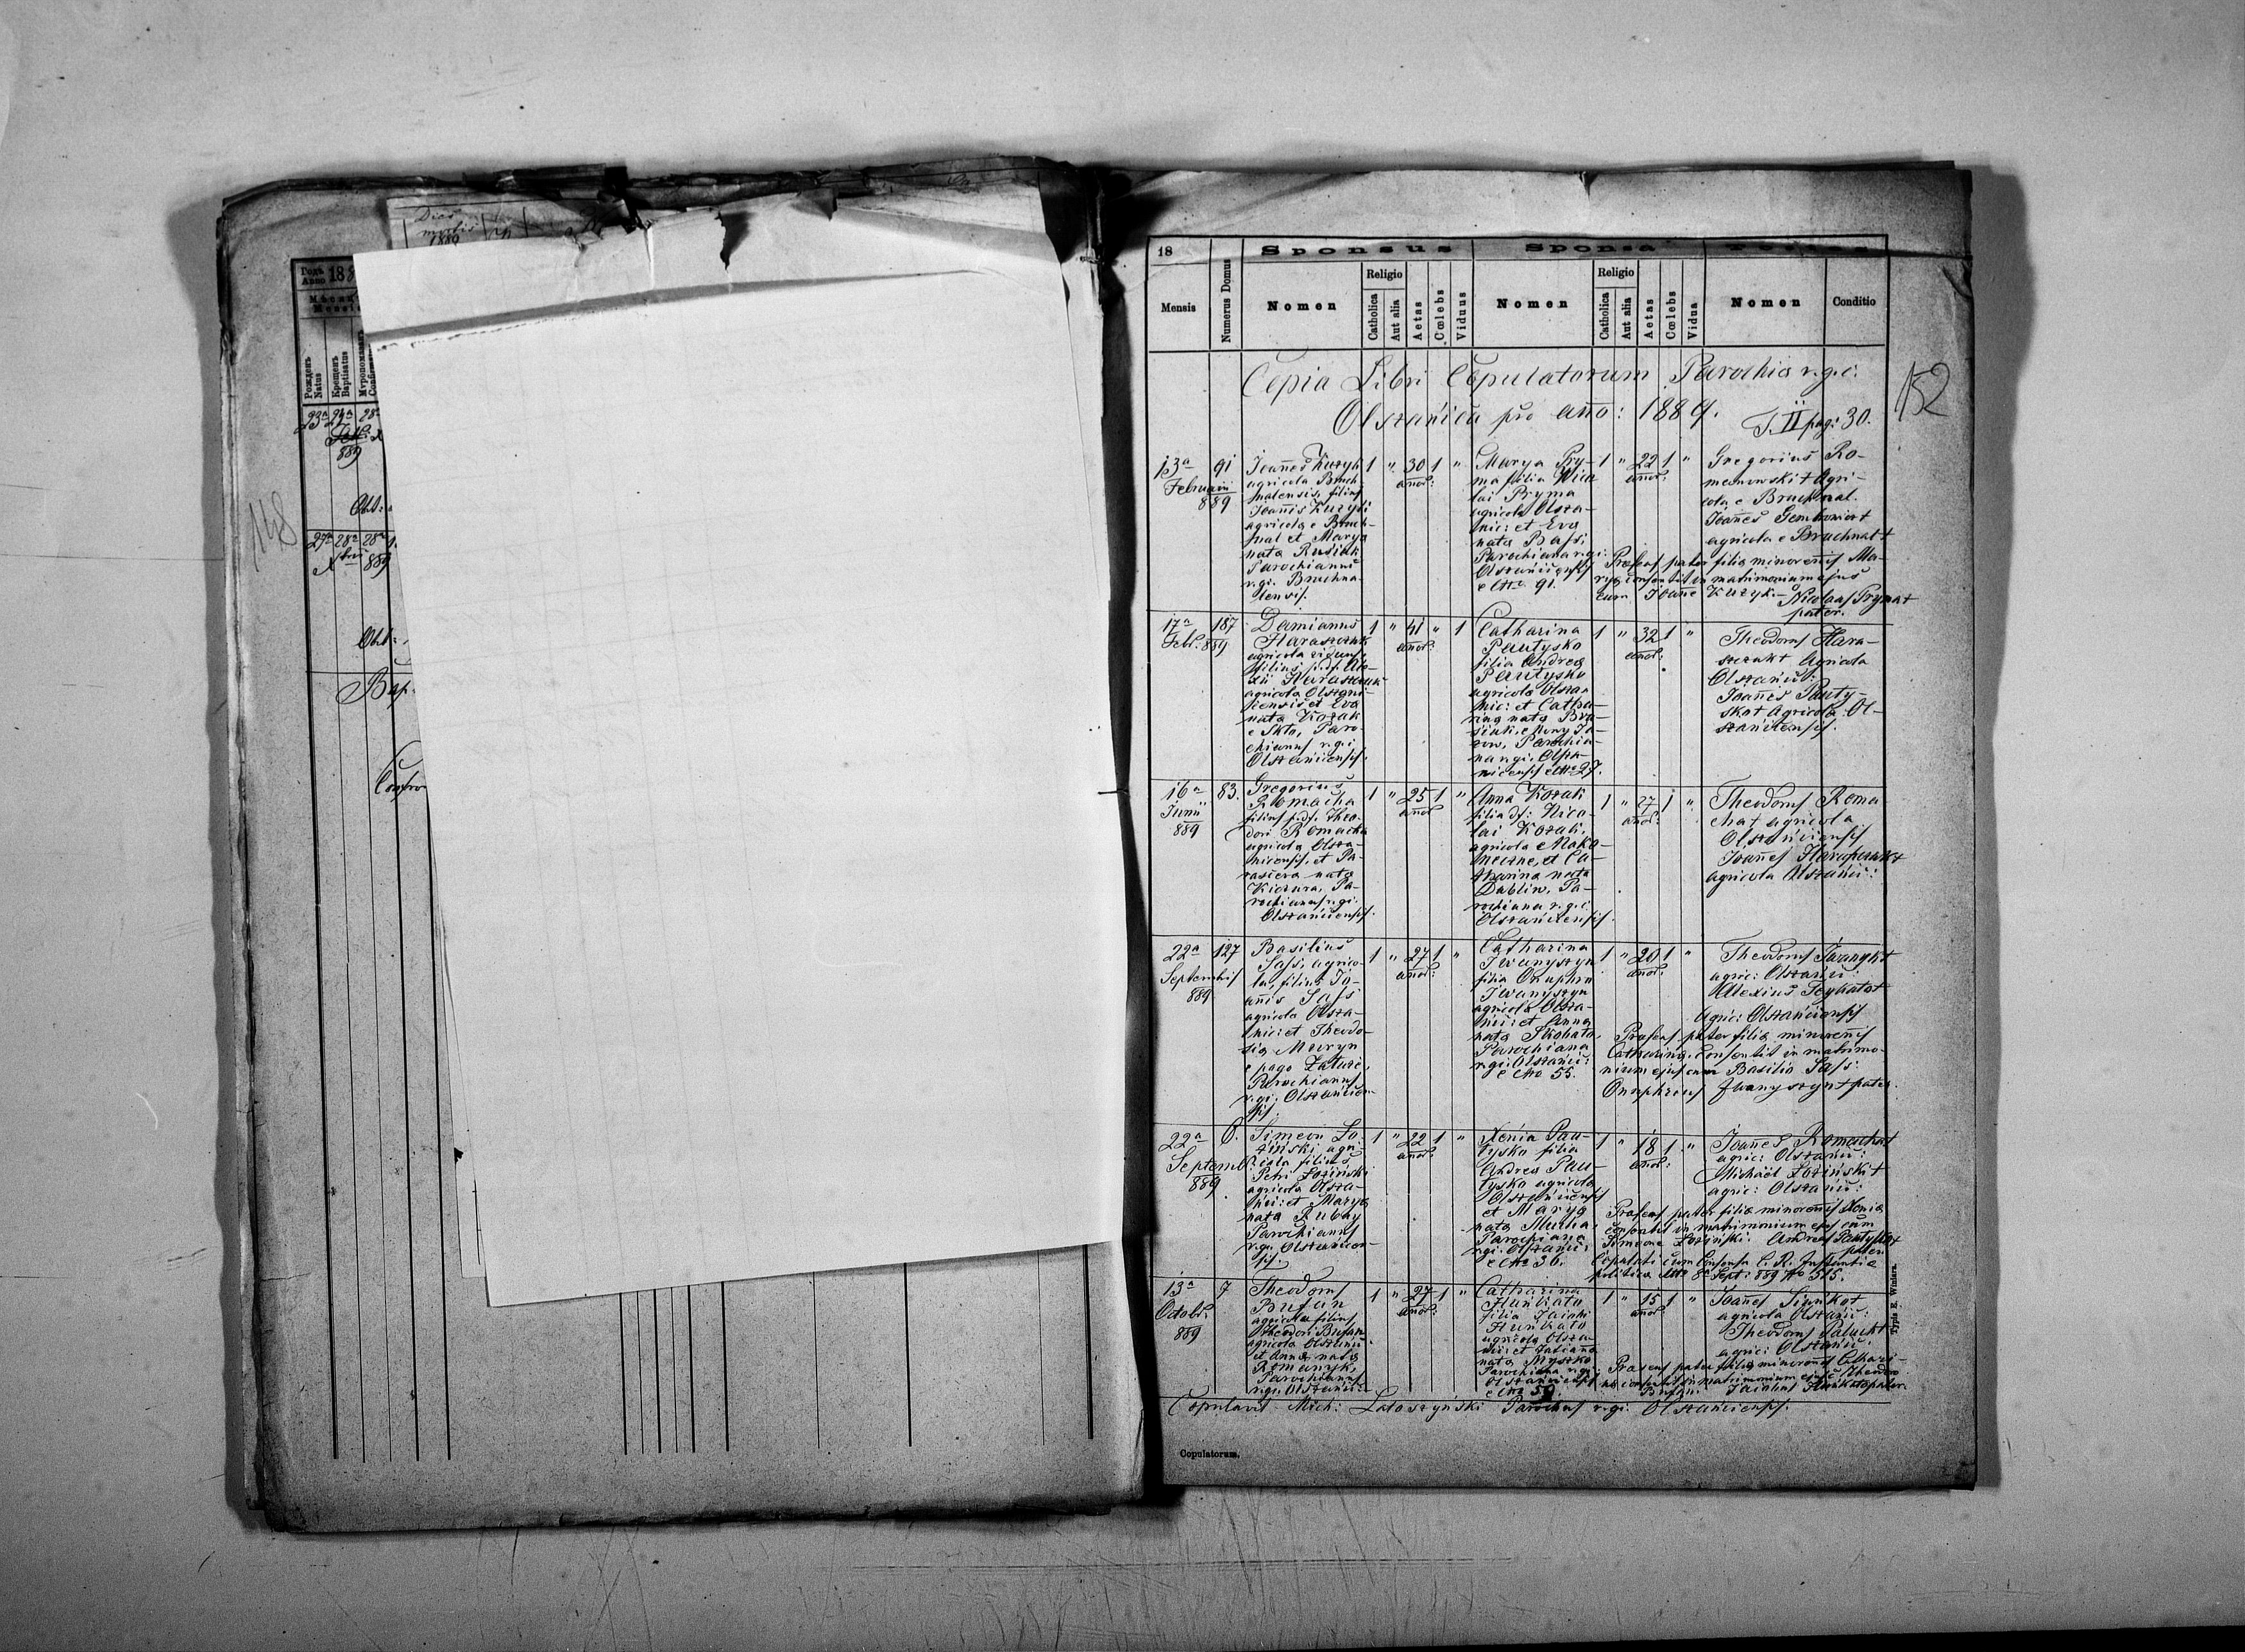 Dies
mortis
1889
Годъ
Anno 188
Мѣсяц
Mensis
Рожденъ
Natus
Крещенъ
Baptisatus
Мѵропомазанъ
23ª 24ª 28ª
889
Obst:
148
27ª 28ª 28ª
Xbris 889
Obst:
Bap
Confro
18
Sponsus
Sponsa
Testes
Mensis
Numerus Domus
Nomen
Religio
Catholica
Aut alia
Aetas
Cœlebs
Viduus
Nomen
Religio
Catholica
Aut alia
Aetas
Cœlebs
Vidua
Nomen
Conditio
Copia Libri Copulatorum Parochia r.g.c.
Olszanica pro anno: 1889.
T. II pag: 30.
152
13ª
Februarii
889
91
Joannes Kuzyk
agricola Bruch-
nalensis, filius
Joannis Kuzyk
agricola e Bruch-
nal et Marya
nata Rusiak
Parochianus
r.g.c. Bruchna-
lensis.
1 " 30 1 "
annor:
Marya Pry-
ma filia Nico
lai Pryma
agricola Olsza-
nic: et Eva
nata Bassi
Parochiana r.g.c.
Olszanicensis
e No 91.
1 " 22 1 "
annor:
Gregorius Ro-
manowski + Agri-
cola e Bruchnal.
Joannes Gembowicz +
agricola e Bruchnal +
Præsens pater filiæ minorennis Ma-
rya consentit in matrimonium ejus
cum Joanne Kuzyk. - Nicolaus Pryma +
pater.
17ª
Febr. 889
187
Damianus
Haraszczuk
agricola viduus,
filius p.d. Ale-
xii Haraszczuk
agricola Olszani-
censis et Eva
nata Kozak
e Skło, Paro-
chianus r.g.c.
Olszanicensis.
1 " 41 " 1
annor:
Catharina
Pautysko
filia Andrea
Pautysko
agricola Olsza-
nic: et Catha-
rina nata Bra-
Parochia-
na r.g.c. Olsza-
nicensis e No 27.
1 " 32 1 "
annor:
Theodorus Hara-
szczuk + Agricola
Olszanic:
Joannes Pauty-
sko + Agricola Ol-
szanicensis.
16ª
Junii
889
83.
Gregorius
Romacha
filius p.d. Theo-
dori Romacha
agricola Olsza-
nicensis, et Pa-
rascera nata
Kiczura, Pa-
rochianus r.g.c.
Olszanicensis.
1 " 25 1 "
annor
Anna Kozak
filia df: Nico-
lai Kozak,
agricola e Mako-
nieczne, et Ca-
tharina nata
Dablin, Pa-
rochiana r.g.c.
Olszanicensis.
1 " 27 1 "
annor:
Theodorus Roma
cha + agricola
Olszanicensis
Joannes Haraszczuk +
agricola Olszanic:
22ª
Septembris
889
127
Basilius
Sass, agrico-
la, filius Jo-
annis Sass
agricola Olsza-
nic: et Theodo-
sia Muryn
e pago Zaturie,
Parochianus
r.g.c. Olszanicen-
sis.
1 " 27 1 "
annor:
Catharina
Iwanyszyn
filia Onuphrii
Iwanyszyn
agricola Olsza-
nic: et Anna
nata Skobalo,
Parochiana
r.g.c. Olszanic:
e No 55.
1 " 20 1 "
annor:
Theodorus
agric: Olszanic:
Alexius
Agric: Olszanicensis
Præsens pater filiæ minorennis
Catharina, consentit in matrimo-
nium ejus cum Basilio Sass:
Onuphreus Iwanyszyn + pater.
22ª
Septembr.
889
6.
Simeon Ło-
ziński agri-
cola filius
Petri Łoziński
agricola Olsza-
nic: et Marya
nata Rubay
Parochianus
r.g.c. Olszanicen-
sis.
1 " 22 1 "
annor:
Xenia Pau-
tysko filia
Andrea Pau-
tysko agricola
Olszanicensis
et Marya
nata Mucha,
Parochiana
r.g.c. Olszanic:
e No 36.
1 " 18 1 "
annor:
Joannes Romacha +
agric: Olszanic:
Michael Łoziński +
agric: Olszanic:
Præsens pater filiæ minorennis Xenia
consentit in matrimonium ejus cum
Simeone Łoziński. Andreas Pautysko +
pater.
Copulati cum consensu C. R. Instantiæ
politica dto 8ª Sept: 889 No 515.
13ª
Octobr.
889
7
Theodorus
Bufan
agricola filius
Theodori Bufan
agricola Olszanic:
et Anna nata
Romanyk,
Parochianus
r.g.c. Olszanic:
1 " 27 1 "
annor:
Catharina
Hunkato
filia Jacinti
Hunkato
agricola Olsza-
nic: et Tatiana
nata Myszko
Parochiana r.g.c.
Olszanicensis
e No 59.
1 " 15 1 "
annor:
Joannes Siuśko +
agricola Olszanic:
Theodorus Paluch +
agric: Olszanic:
Præsens pater filiæ minorennis Cathari-
na consentit in matrimonium ejus c. Theodoro
Bufan. Jacintus Hunkato pater.
Typis E. Winiarz.
Copulavit Mich: Latoszyński Parochus r.g.c. Olszanicensis.
Copulatorum.